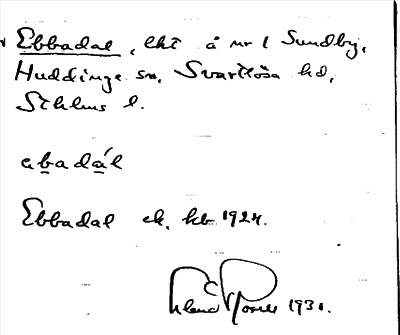 Ebbadal, lht å nr 1 Sundby,
Huddinge sn, Svartlösa hd,
Sthlms l.
ebadál
Ebbadal ek. kb 1924.
1930.